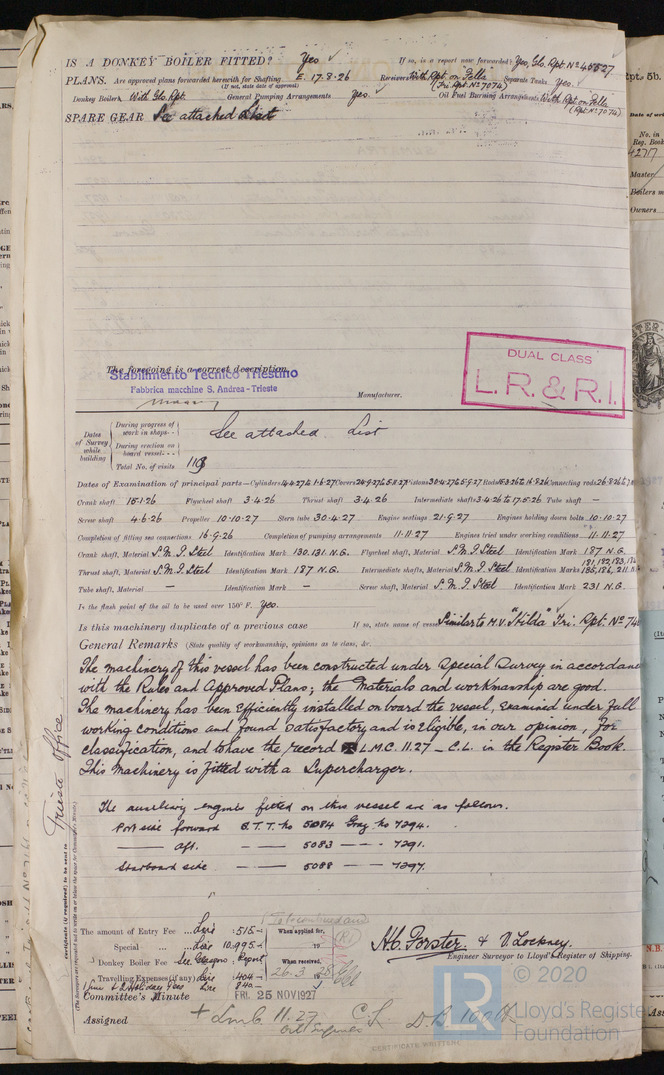 IS A DONKEY BOILER FITTED? Yes ✓ If so, is a report now forwarded? Yes, Glo. Rpt. No 45527
PLANS. Are approved plans forwarded herewith for Shafting E. 17.8.26 Receivers With Rpt on Fella Separate Tanks Yes.
(If not, state date of approval) (Tri. Rpt. No 7074)
Donkey Boilers With Glo. Rpt. General Pumping Arrangements Yes. Oil Fuel Burning Arrangements With Rpt on Fella
(Rpt. No 7074)
SPARE GEAR See attached List
DUAL CLASS
L.R. & R.I.
The foregoing is a correct description,
Stabilimento Tecnico Triestino
Fabbrica macchine S. Andrea - Trieste
Manufacturer.
Dates of Survey while building
During progress of work in shops
During erection on board vessel
See attached List
Total No. of visits 118
Dates of Examination of principal parts—Cylinders 4.4.27 to 1.6.27 Covers 24.9.27 to 5.11.27 Pistons 30.4.27 to 5.9.27 Rods 15.3.26 to 16.8.26 Connecting rods 26.8.26 to
Crank shaft 15.1.26 Flywheel shaft 3.4.26 Thrust shaft 3.4.26 Intermediate shafts 3.4.26 to 17.5.26 Tube shaft —
Screw shaft 4.6.26 Propeller 10.10.27 Stern tube 30.4.27 Engine seatings 21.9.27 Engines holding down bolts 10.10.27
Completion of fitting sea connections 16.9.26 Completion of pumping arrangements 11.11.27 Engines tried under working conditions 11.11.27
Crank shaft, Material S.M.I. Steel Identification Mark 130.131 N.G. Flywheel shaft, Material S.M.I. Steel Identification Mark 187 N.G.
Thrust shaft, Material S.M.I. Steel Identification Mark 187 N.G. Intermediate shafts, Material S.M.I. Steel Identification Marks 181,182,183,184
185,186, 211. N.G.
Tube shaft, Material — Identification Mark — Screw shaft, Material S.M.I. Steel Identification Mark 231 N.G.
Is the flash point of the oil to be used over 150° F. Yes.
Is this machinery duplicate of a previous case If so, state name of vessel Similar to M.V. "Hilda" Tri. Rpt. No
General Remarks (State quality of workmanship, opinions as to class, &c.
The machinery of this vessel has been constructed under special survey in accordance
with the Rules and Approved Plans; the Materials and workmanship are good.
The machinery has been efficiently installed on board the vessel, examined under full
working conditions and found satisfactory and is eligible, in our opinion, for
classification, and to have the record ✠ L.M.C. 11.27 – C.L. in the Register Book.
This Machinery is fitted with a Supercharger.
The auxiliary engines fitted on this vessel are as follows.
Port side forward S.T.T. No 5084 Gray. No 7294.
— aft. — — 5083 — — 7291.
Starboard side — — 5088 — — 7297.
Trieste Office
Certificate (if required) to be sent to
The amount of Entry Fee ... Lire : 515 :–
Special ... Lire 10,995 :–
Donkey Boiler Fee See Glasgow Report
Travelling Expenses (if any) Lire : 404 :–
Lire 840 :–
When applied for,
19
When received,
26.3 28
H.C. Forster & V. Lockney.
Engineer Surveyor to Lloyd's Register of Shipping.
Committee's Minute FRI. 25 NOV 1927
Assigned + Lmc 11.27 C.L. D.B. 100 lb
Oil Engines
CERTIFICATE WRITTEN
© 2020
LR
Lloyd's Register
Foundation